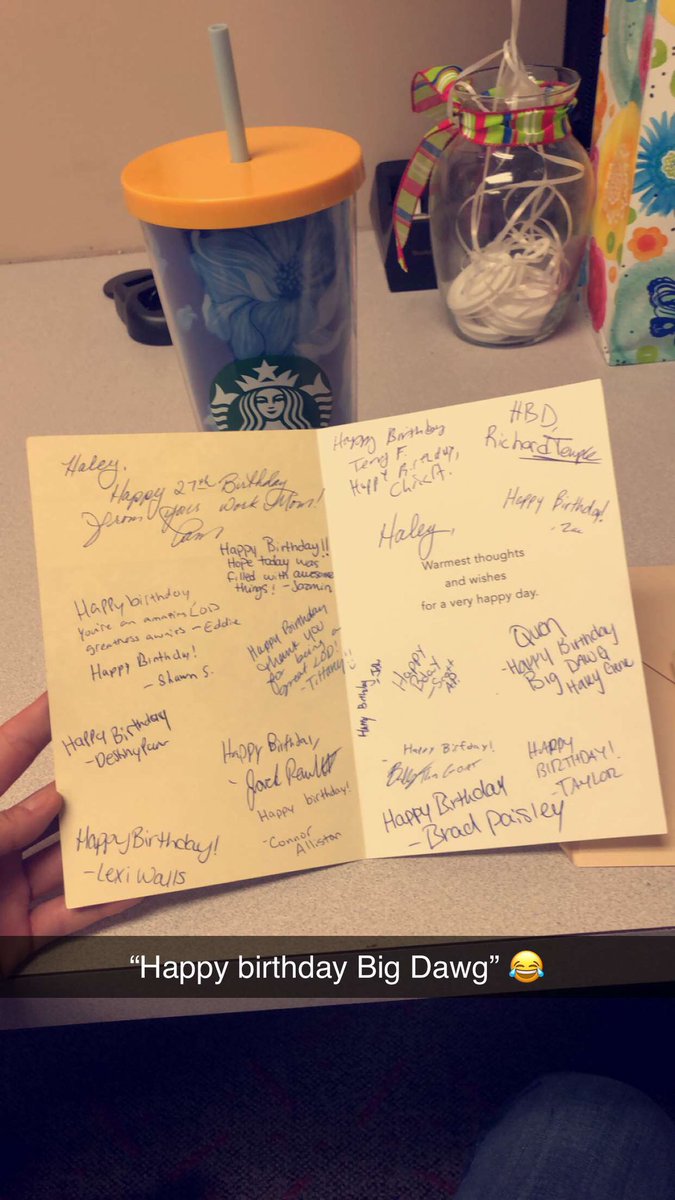 Haley,
Happy 27th Birthday
From Your Work Mom!
Happy Birthday!!
Hope today was
filled with awesome
things! - Jazmin
Happy birthday
You're an amazing LOD
greatness awaits - Eddie
Happy Birthday!
- Shawn S.
Happy Birthday
thank you
for being a
great LOD!
- Tiffany
Happy Birthday
- Destiny
Happy Birthday,
- Jack
Happy birthday!
- Connor
Alliston
Happy Birthday!
- Lexi Walls
Happy Birthday
Terry F.
Birthday,
Chris A.
HBD,
Richard Temple
Happy Birthday!
Haley,
Warmest thoughts
and wishes
for a very happy day.
Happy Birthday
Happy
Bday
Quon
- Happy Birthday
Big DAWG
- Happy Birfday!
Happy Birthday
- Brad Paisley
HAPPY
BIRTHDAY!
- TAYLOR
“Happy birthday Big Dawg” 😂